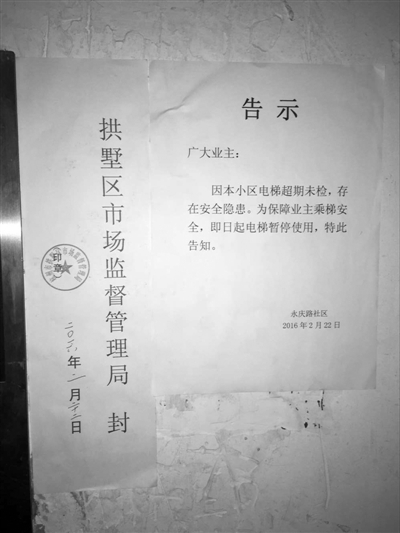 告示
广大业主：
因本小区电梯超期未检，存
在安全隐患。为保障业主乘梯安
全，即日起电梯暂停使用，特此
告知。
永庆路社区
2016年2月22日
拱墅区市场监督管理局 封
二〇一六年二月二十二日
印章